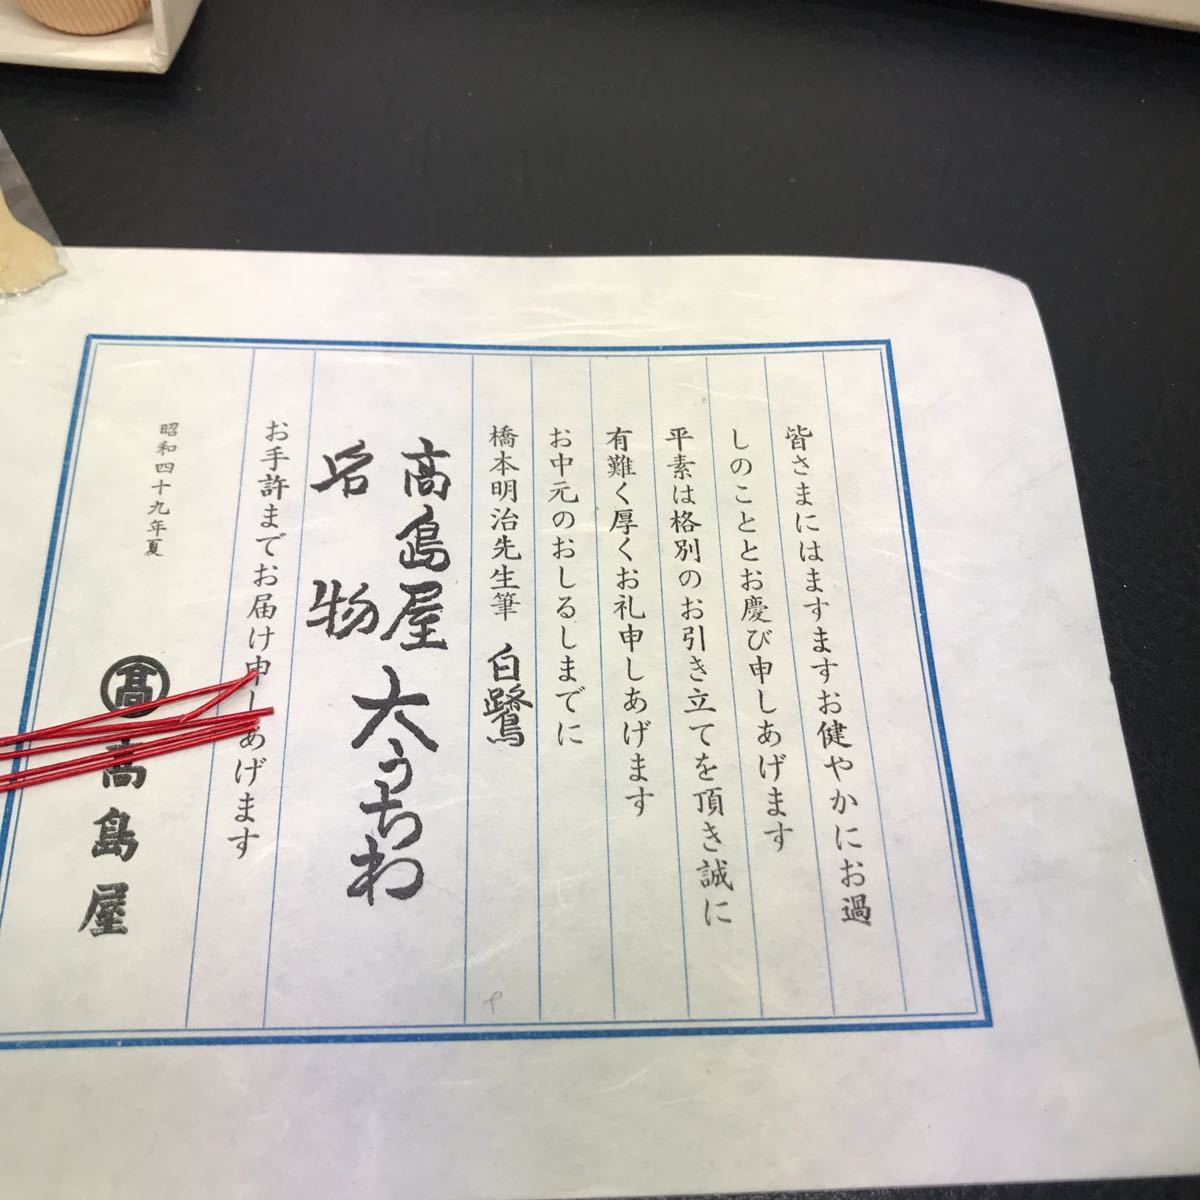 皆さまにはますますお健やかにお過
しのこととお慶び申しあげます
平素は格別のお引き立てを頂き誠に
有難く厚くお礼申しあげます
お中元のおしるしまでに
橋本明治先生筆 白鷺
高島屋
名物
大うちわ
お手許までお届け申しあげます
昭和四十九年夏
髙 高島屋